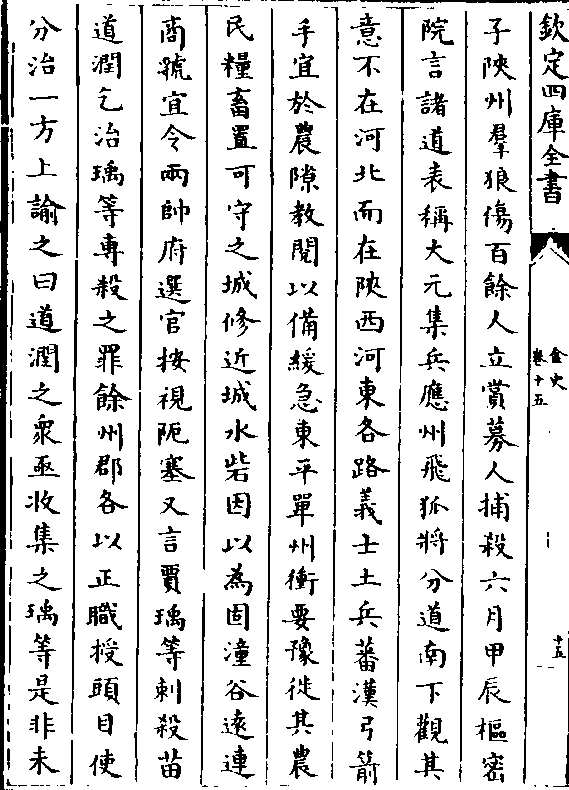 欽定四庫全書
金史
卷十五
十五
子陜州羣狼傷百餘人立賞募人捕殺六月甲辰樞密
院言諸道表稱大元集兵應州飛狐將分道南下觀其
意不在河北而在陜西河東各路義士土兵蕃漢弓箭
手宜於農隙教閱以備緩急東平單州衝要豫徙其農
民糧畜置可守之城修近城水砦因以為固潼谷遠連
商虢宜令兩帥府選官按視阨塞又言賈瑀等刺殺苗
道潤乞治瑀等專殺之罪餘州郡各以正職授頭目使
分治一方上諭之曰道潤之衆亟收集之瑀等是非未